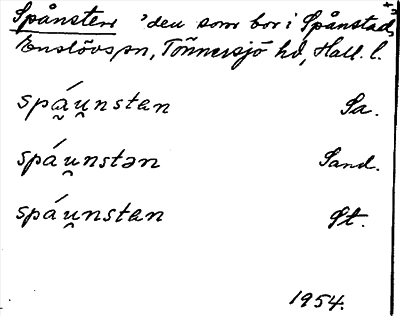 Spånsten 'den som bor i Spånstad,
Enslövs sn, Tönnersjö hd, Hall. l.
spá̰u̯nstan Sa.
spáu̯nstən Sand.
spáu̯nstan St.
1954.